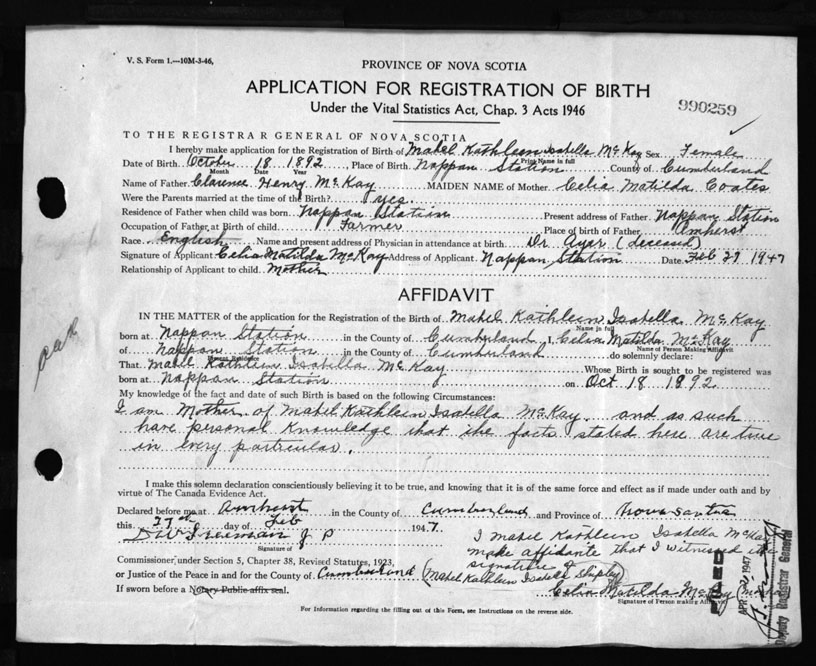 V. S. Form 1.—10M-3-46,
PROVINCE OF NOVA SCOTIA
APPLICATION FOR REGISTRATION OF BIRTH
Under the Vital Statistics Act, Chap. 3 Acts 1946
990259
TO THE REGISTRAR GENERAL OF NOVA SCOTIA
I hereby make application for the Registration of Birth of Mabel Kathleen Isabella McKay Sex Female
Print Name in full
Date of Birth October 18 1892, Place of Birth Nappan Station County of Cumberland
Month Date Year
Name of Father Clarence Henry McKay MAIDEN NAME of Mother Celia Matilda Coates
Were the Parents married at the time of the Birth? yes
Residence of Father when child was born Nappan Station Present address of Father Nappan Station
Occupation of Father at Birth of child Farmer Place of birth of Father Amherst
Race English Name and present address of Physician in attendance at birth Dr Ayar (deceased)
Signature of Applicant Celia Matilda McKay Address of Applicant Nappan Station Date Feb 27 1947
Relationship of Applicant to child Mother
AFFIDAVIT
IN THE MATTER of the application for the Registration of the Birth of Mabel Kathleen Isabella McKay
Name in full
born at Nappan Station in the County of Cumberland I, Celia Matilda McKay
Name of Person Making Affidavit
of Nappan Station in the County of Cumberland do solemnly declare:
Present Residence
That Mabel Kathleen Isabella McKay Whose Birth is sought to be registered was
born at Nappan Station on Oct 18 1892
My knowledge of the fact and date of such Birth is based on the following Circumstances:
I am Mother of Mabel Kathleen Isabella McKay and as such
have personal knowledge that the facts stated here are true
in every particular.
I make this solemn declaration conscientiously believing it to be true, and knowing that it is of the same force and effect as if made under oath and by
virtue of The Canada Evidence Act.
Declared before me at Amherst in the County of Cumberland and Province of Nova Scotia
this 27th day of Feb 1947
Freeman J P
Signature of
I Mabel Kathleen Isabella McKay
make affidante that I witnessed the
signature of
Commissioner, under Section 5, Chapter 38, Revised Statutes, 1923,
or Justice of the Peace in and for the County of Cumberland
(Mabel Kathleen Isabella Shipley)
Celia Matilda McKay
If sworn before a Notary Public affix seal.
Signature of Person making Affidavit
For Information regarding the filling out of this Form, see Instructions on the reverse side.
FILED
APR 1947
Deputy Registrar General